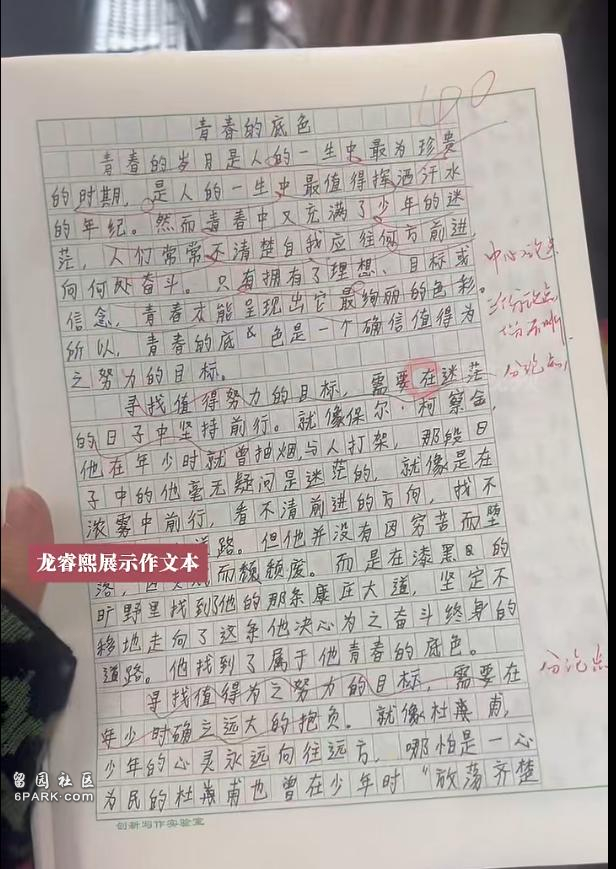 100
青春的底色
青春的岁月是人的一生中最为珍贵
的时期，是人的一生中最值得挥洒汗水
的年纪。然而青春中又充满了少年的迷
茫，人们常常不清楚自我应往何方前进，
向何处奋斗。只有拥有了理想、目标或
信念，青春才能呈现出它最绚丽的色彩。
所以，青春的底色是一个确信值得为
之努力的目标。
中心论点
分论点1
寻找值得努力的目标，需要在迷茫
的日子中坚持前行。就像保尔·柯察金，
他在年少时就曾抽烟，与人打架，那段日
子中的他毫无疑问是迷茫的，就像是在
浓雾中前行，看不清前进的方向，找不
道路。但他并没有因穷苦而堕
落，而颓废。而是在漆黑的
旷野里找到了他的那条康庄大道，坚定不
移地走向了这条他决心为之奋斗终身的
道路。他找到了属于他青春的底色。
分论点
寻找值得为之努力的目标，需要在
年少时确立远大的抱负。就像杜甫，
少年的心灵永远向往远方，哪怕是一心
为民的杜甫也曾在少年时“放荡齐楚
龙睿熙展示作文本
创新写作实验室
留园社区
6PARK.COM